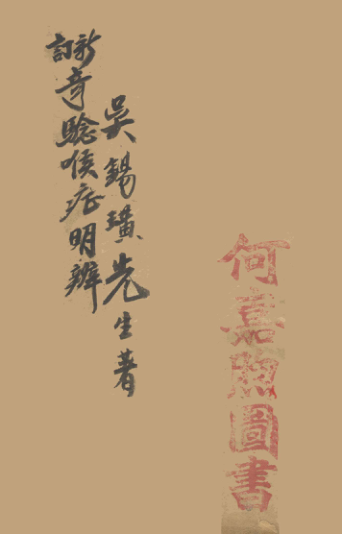 何嘉照圖書
吳錫璜先生著
新訂奇驗喉症明辨